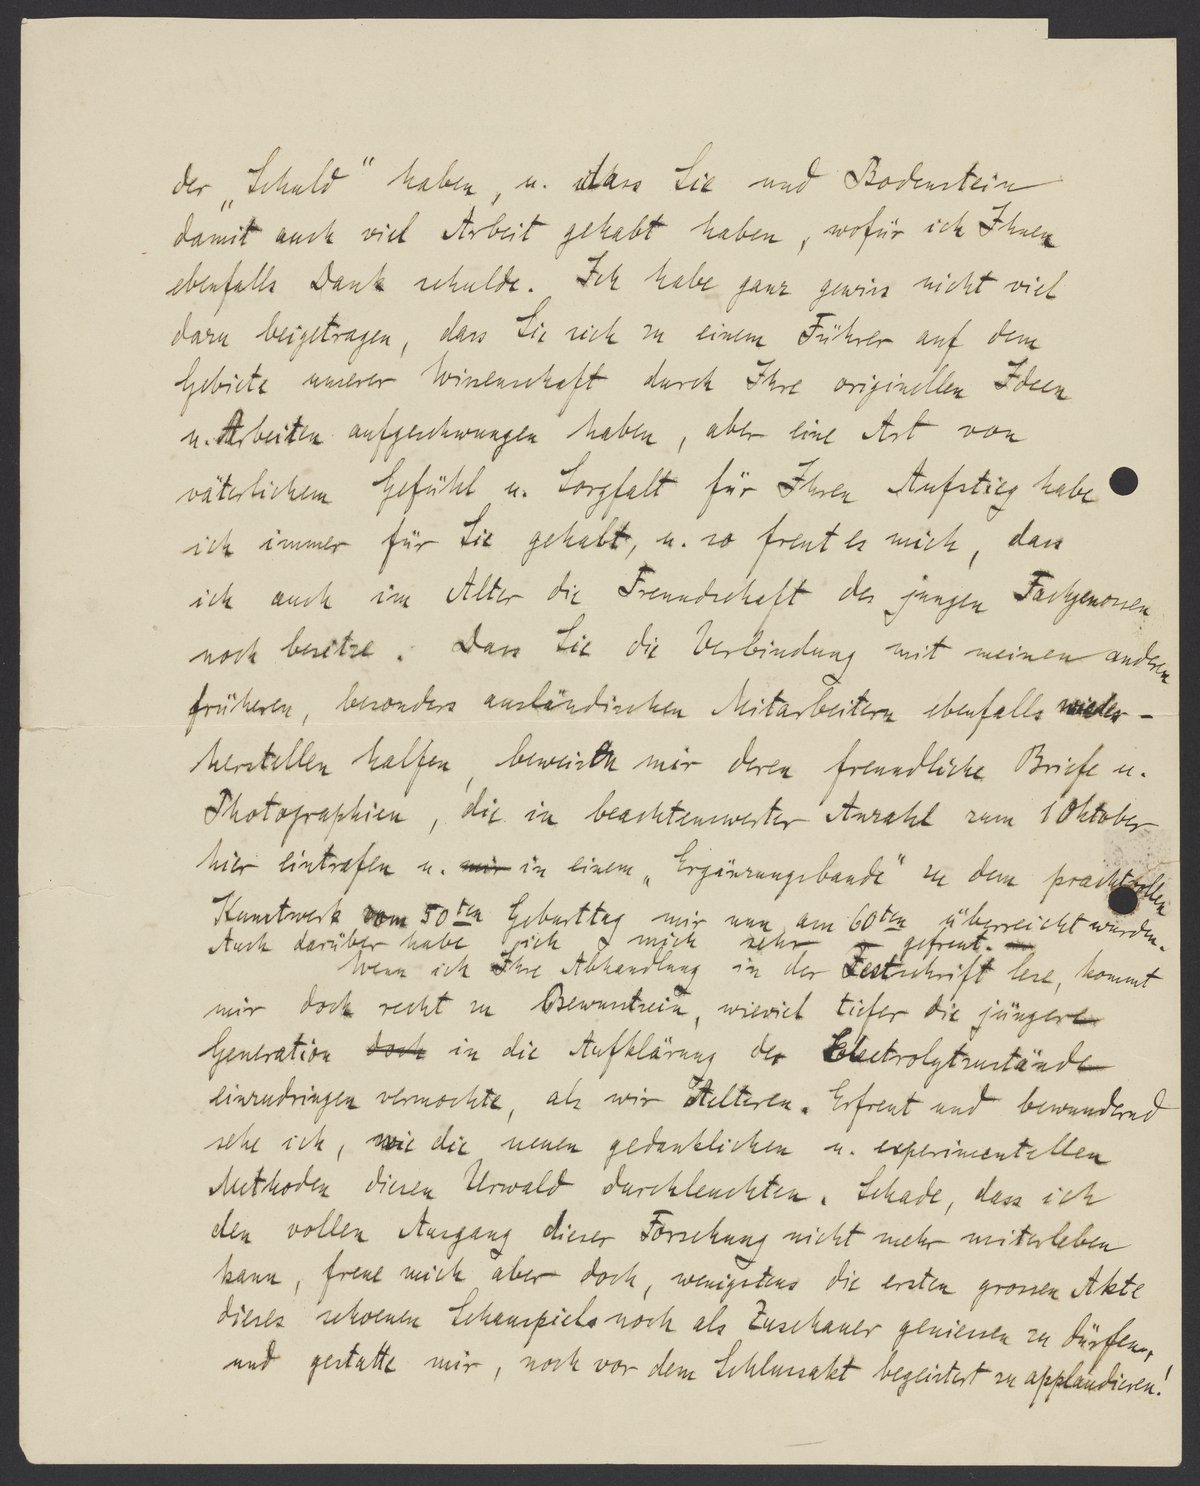 der „Schuld" haben, u. dass Sie und Bodenstein
damit auch viel Arbeit gehabt haben, wofür ich Ihnen
ebenfalls Dank schulde. Ich habe ganz gewiss nicht viel
dazu beigetragen, dass Sie sich zu einem Führer auf dem
Gebiete unserer Wissenschaft durch Ihre originellen Ideen
u. Arbeiten aufgeschwungen haben, aber eine Art von
väterlichem Gefühl u. Sorgfalt für Ihren Aufstieg habe
ich immer für Sie gehabt, u. so freut es mich, dass
ich auch im Alter die Freundschaft des jungen Fachgenossen
noch besitze. Dass Sie die Verbindung mit meinen anderen
früheren, besonders ausländischen Mitarbeitern ebenfalls wieder-
herstellen halfen, beweisen mir deren freundliche Briefe u.
Photographien, die in beachtenswerter Anzahl zum 1 Oktober
hier eintrafen u. mir in einem „Ergänzungsbande" zu dem prachtvollen
Kunstwerk vom 50ten Geburttag mir nun am 60ten überreicht wurden.
Auch darüber habe ich mich sehr gefreut.
Wenn ich Ihre Abhandlung in der Festschrift lese, kommt
mir doch recht zu Bewusstsein, wieviel tiefer die jüngere
Generation doch in die Aufklärung der Elektrolytzustände
einzudringen vermochte, als wir Aelteren. Erfreut und bewundernd
sehe ich, wie die neuen gedanklichen u. experimentellen
Methoden diesen Urwald durchleuchten. Schade, dass ich
den vollen Ausgang dieser Forschung nicht mehr miterleben
kann, freue mich aber doch, wenigstens die ersten grossen Akte
dieses schoenen Schauspiels noch als Zuschauer geniessen zu dürfen,
und gestatte mir, noch vor dem Schlussakt begeistert zu applaudieren!